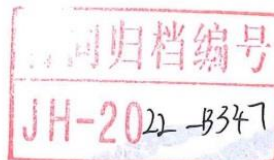 同归档编号
JH-2022-B347